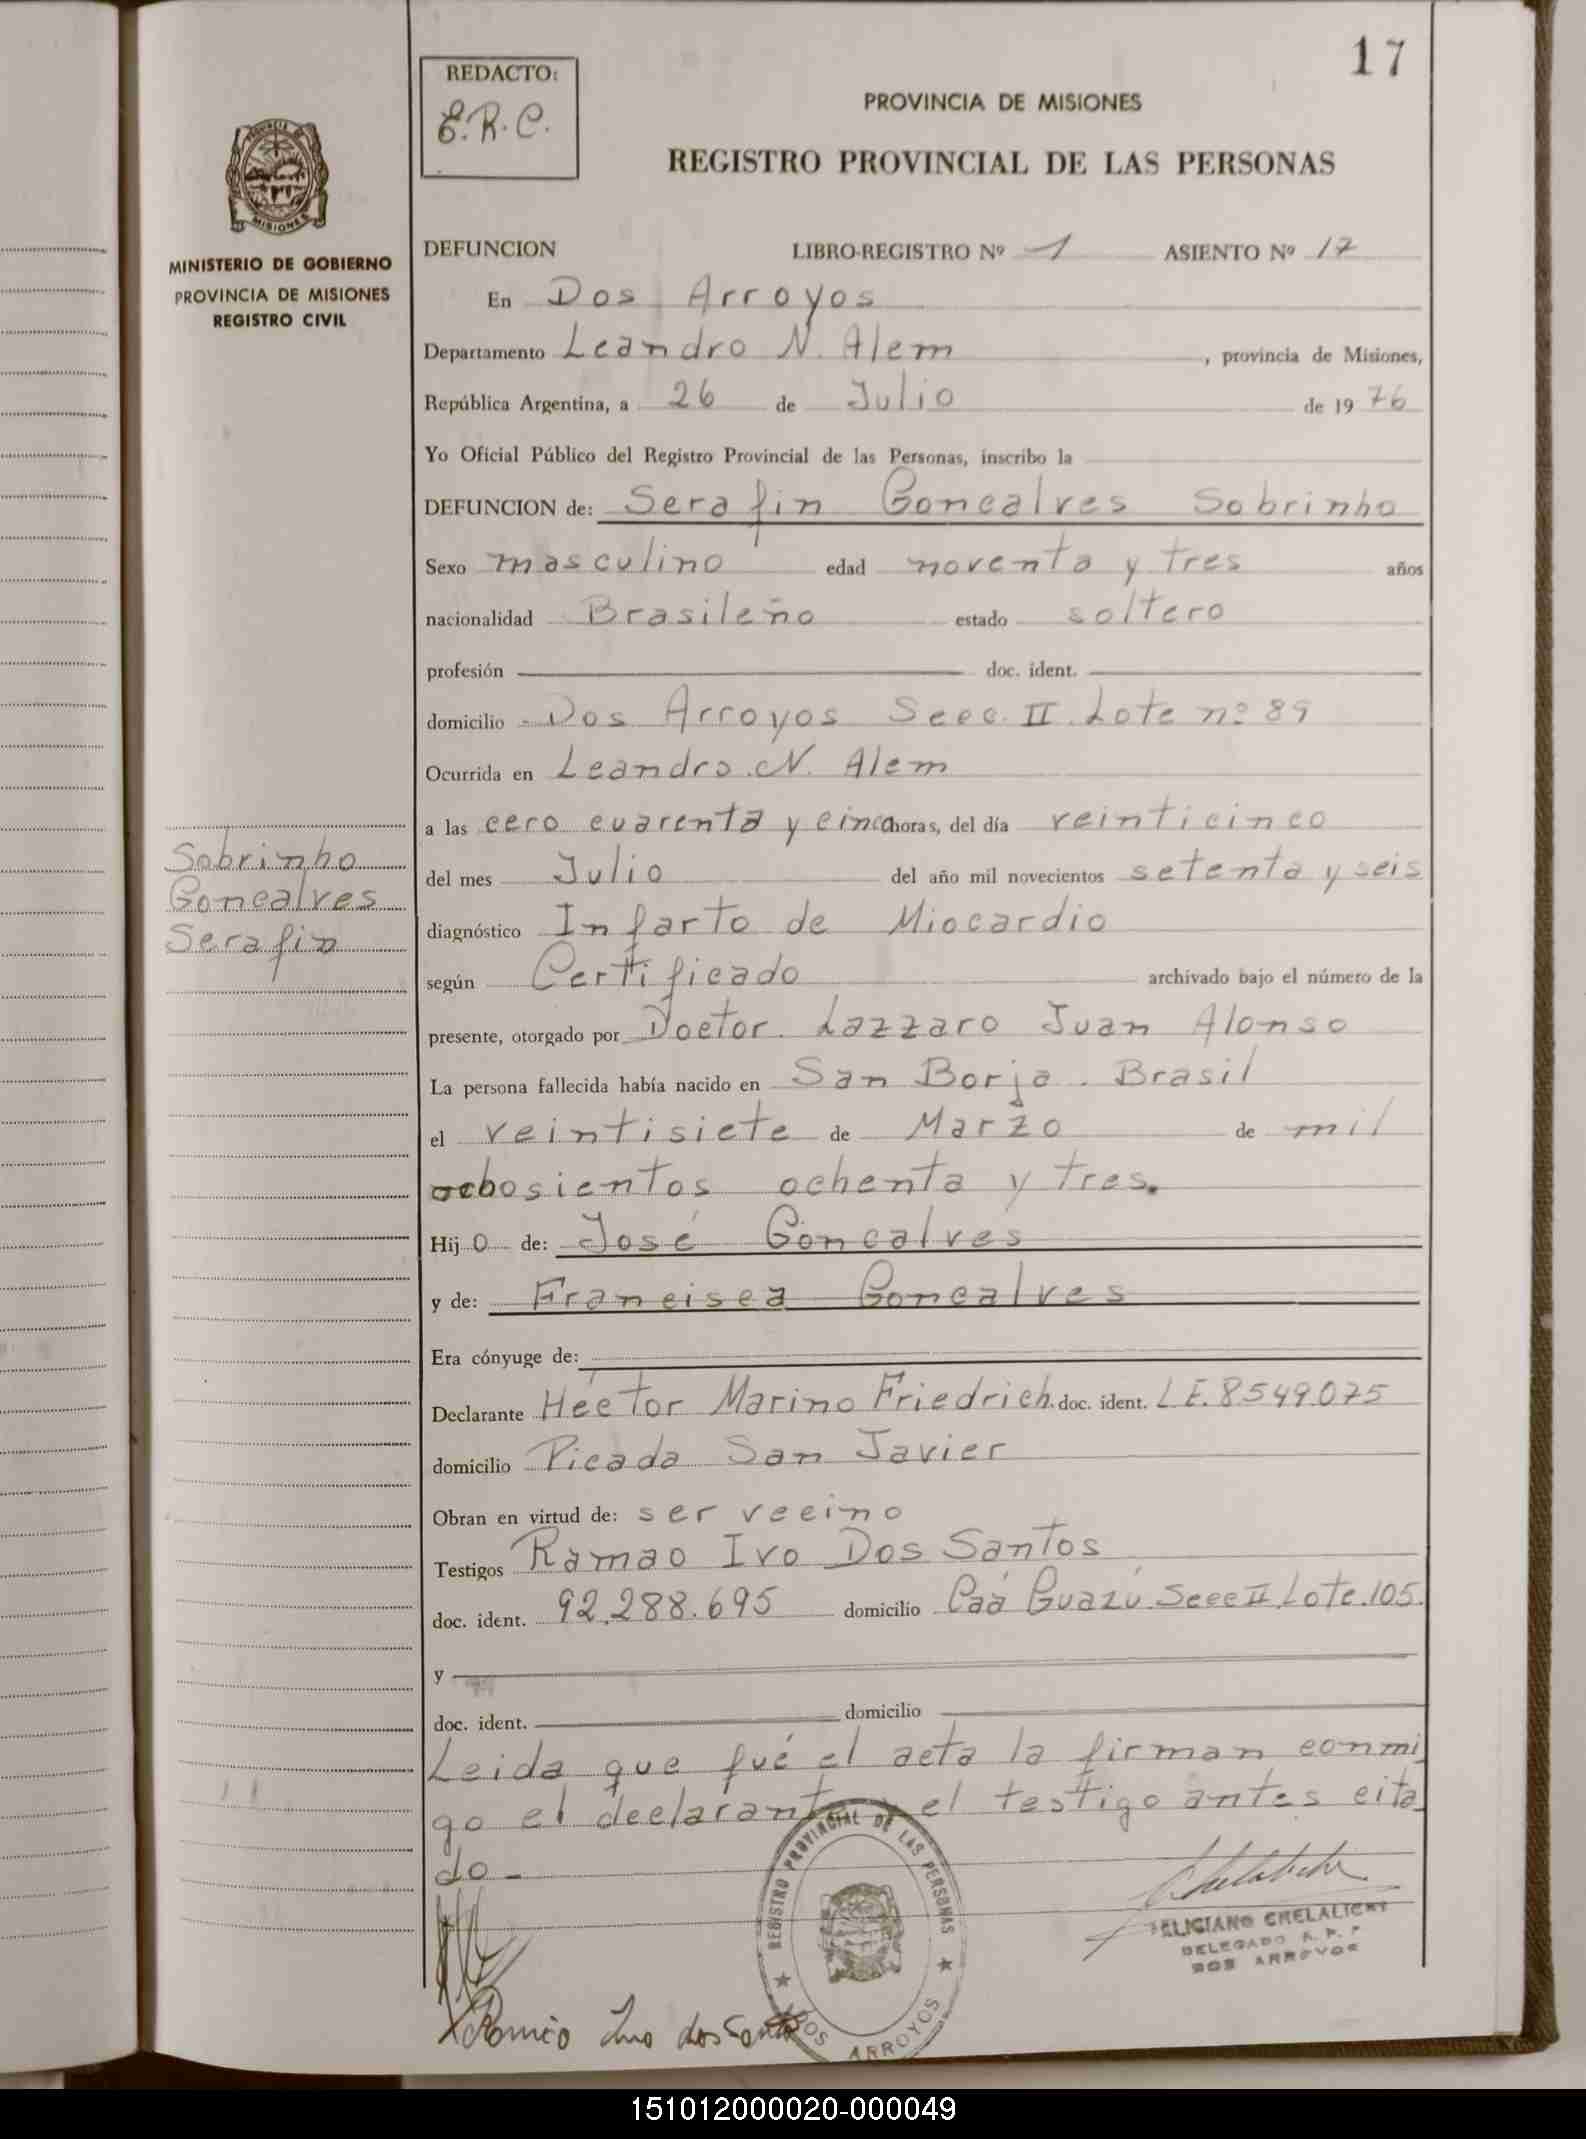 17
REDACTO:
E.R.C.
PROVINCIA DE MISIONES
REGISTRO PROVINCIAL DE LAS PERSONAS
PROVINCIA DE MISIONES
MINISTERIO DE GOBIERNO
PROVINCIA DE MISIONES
REGISTRO CIVIL
DEFUNCION LIBRO-REGISTRO Nº 1 ASIENTO Nº 17
En Dos Arroyos
Departamento Leandro N. Alem, provincia de Misiones,
República Argentina, a 26 de Julio de 1976
Yo Oficial Público del Registro Provincial de las Personas, inscribo la
DEFUNCION de: Serafin Goncalves Sobrinho
Sexo masculino edad noventa y tres años
nacionalidad Brasileño estado soltero
profesión doc. ident.
domicilio Dos Arroyos Secc. II Lote nº 89
Ocurrida en Leandro N. Alem
a las cero cuarenta y cinco horas, del día veinticinco
del mes Julio del año mil novecientos setenta y seis
diagnóstico Infarto de Miocardio
según Certificado archivado bajo el número de la
presente, otorgado por Doctor Lazzaro Juan Alonso
La persona fallecida había nacido en San Borja. Brasil
el veintisiete de Marzo de mil
ochosientos ochenta y tres.
Hijo de: José Goncalves
y de: Francisca Goncalves
Era cónyuge de:
Declarante Héctor Marino Friedrich doc. ident. L.E. 8549.075
domicilio Picada San Javier
Obran en virtud de: ser vecino
Testigos Ramao Ivo Dos Santos
doc. ident. 92.288.695 domicilio Caá Guazú Secc II Lote 105.
y
doc. ident. domicilio
Leida que fué el acta la firman conmi
go el declarante y el testigo antes cita
do -
Sobrinho
Goncalves
Serafin
REGISTRO PROVINCIAL DE LAS PERSONAS
DOS ARROYOS
FELICIANO CHELALICHE
DELEGADO R. P. P.
DOS ARROYOS
Ramão Ivo dos Santos
151012000020-000049